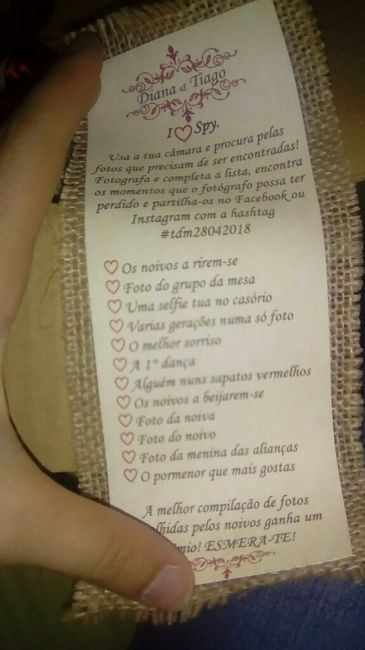 Diana & Tiago
I ♡ Spy.
Usa a tua câmara e procura pelas
fotos que precisam de ser encontradas!
Fotografa e completa a lista, encontra
os momentos que o fotógrafo possa ter
perdido e partilha-os no Facebook ou
Instagram com a hashtag
#tdm28042018
♡ Os noivos a rirem-se
♡ Foto do grupo da mesa
♡ Uma selfie tua no casório
♡ Varias gerações numa só foto
♡ O melhor sorriso
♡ A 1ª dança
♡ Alguém nuns sapatos vermelhos
♡ Os noivos a beijarem-se
♡ Foto da noiva
♡ Foto do noivo
♡ Foto da menina das alianças
♡ O pormenor que mais gostas
A melhor compilação de fotos
lhidas pelos noivos ganha um
mio! ESMERA-TE!